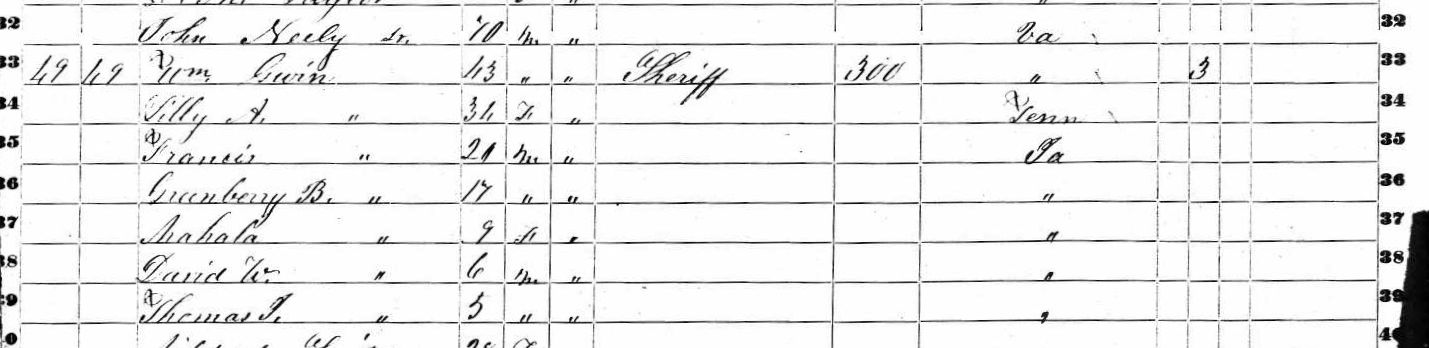 32 John Neely Sr. 70 m " Va 32
33 49 49 Wm. Gwin 43 " " Sheriff 300 " 3 33
34 A. " 34 F " Tenn 34
35 Francis " 21 m " Ia 35
36 Greenberry B. " 17 " " " 36
37 Mahala " 9 F " " 37
38 David W. " 6 m " " 38
39 Thomas J. " 5 " " " 39
40